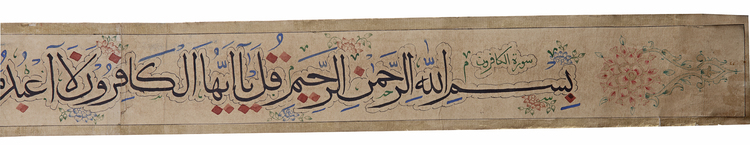 سورة الكافرون
بِسْمِ اللّٰهِ الرَّحْمٰنِ الرَّحِيْمِ قُلْ يَا اَيُّهَا الْكَافِرُوْنَ لَا اَعْبُدُ